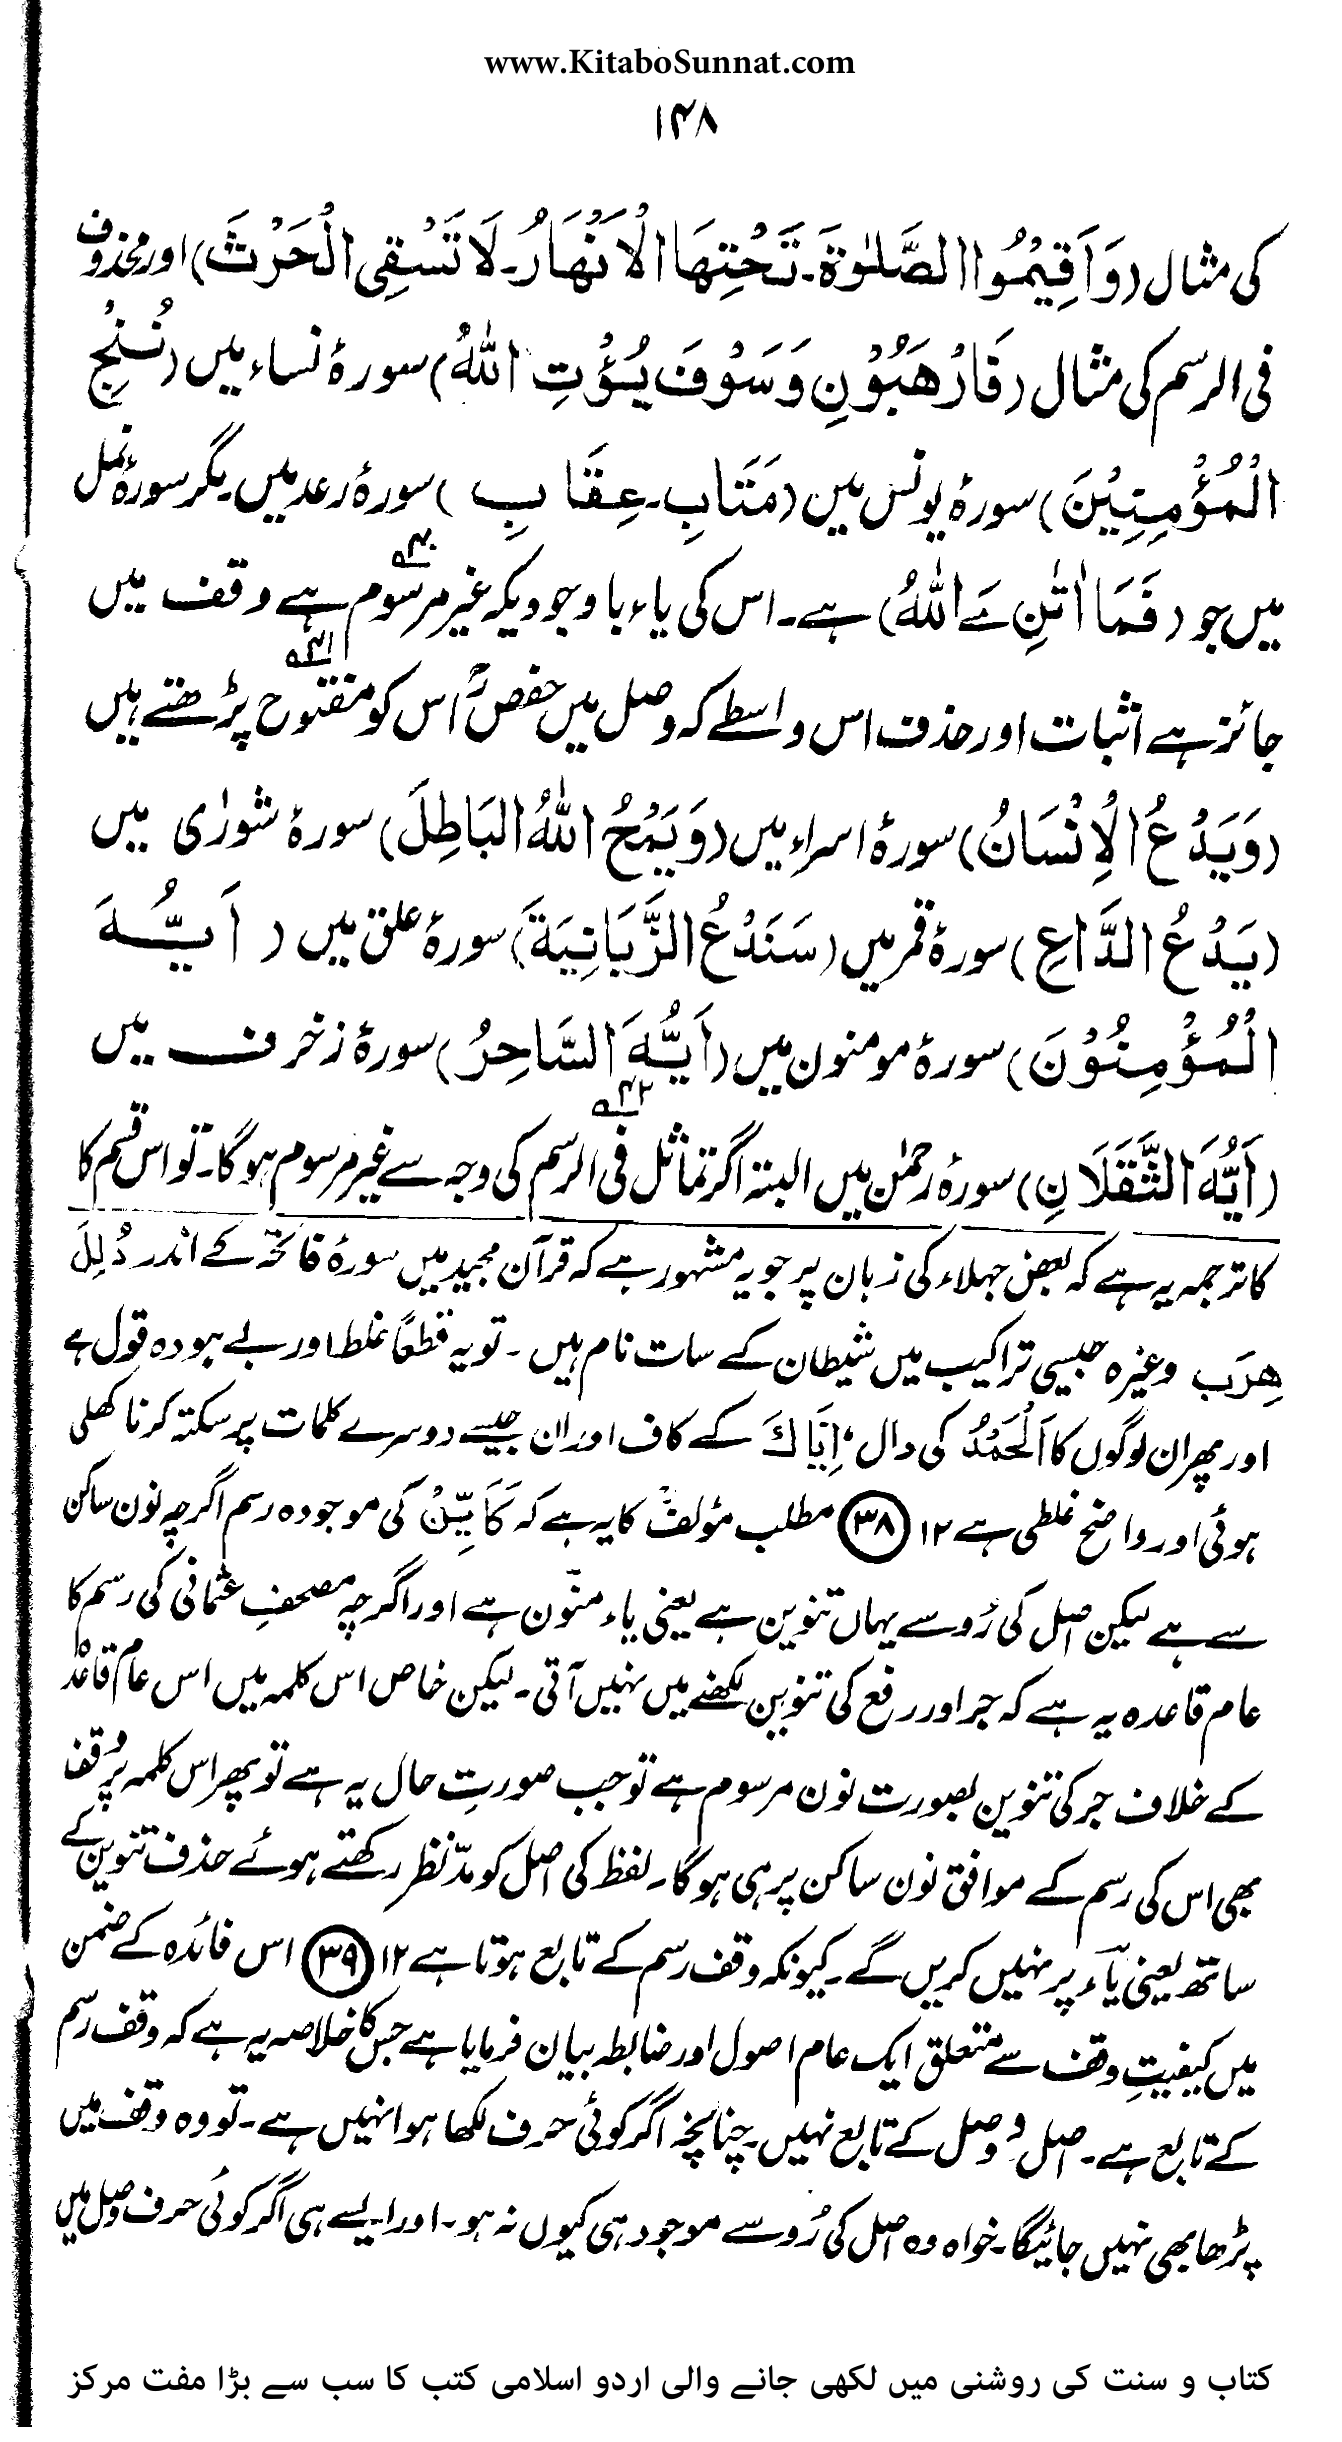 www.KitaboSunnat.com
۱۴۸
کی مثال (وَاَقِيْمُوا الصَّلٰوةَ۔ تَحْتِهَا الْاَنْهَارُ۔ لَا تَسْقِى الْحَرْثَ) اور محذوف
فی الرسم کی مثال (فَارْهَبُوْنِ وَسَوْفَ يُؤْتِ اللّٰهُ) سورۂ نساء میں (نُنْجِ
الْمُؤْمِنِيْنَ) سورۂ یونس میں (مَتَابِ۔ عِقَابِ) سورۂ رعد میں۔ مگر سورۂ نمل
میں جو (فَمَا اٰتٰنِ ےَ اللّٰهُ) ہے۔ اس کی یاء باوجودیکہ غیر مرسوم ہے۴۰ وقف میں
جائز ہے اثبات اور حذف اس واسطے کہ وصل میں حفصؒ اس کو مفتوح۴۱ پڑھتے ہیں
(وَيَدْعُ الْاِنْسَانُ) سورۂ اسراء میں (وَيَمْحُ اللّٰهُ البَاطِلَ) سورۂ شورٰی میں
(يَدْعُ الدَّاعِ) سورۂ قمر میں (سَنَدْعُ الزَّبَانِيَةَ) سورۂ علق میں (اَيُّهَ
الْمُؤْمِنُوْنَ) سورۂ مومنون میں (اَيُّهَ السَّاحِرُ) سورۂ زخرف میں
(اَيُّهَ الثَّقَلَانِ) سورۂ رحمٰن میں البتہ اگر تماثل فی الرسم۴۲ کی وجہ سے غیر مرسوم ہوگا۔ تو اس قسم کا
کا ترجمہ یہ ہے کہ بعض جہلاء کی زبان پر جو یہ مشہور ہے کہ قرآن مجید میں سورۂ فاتحہ کے اندر دُلِلَ
هِرَب وغیرہ جیسی تراکیب میں شیطان کے سات نام ہیں۔ تو یہ قطعًا غلط اور بے ہودہ قول ہے
اور پھر ان لوگوں کا اَلْحَمْدُ کی دال، اِيَّاكَ کے کاف اور ان جیسے دوسرے کلمات پر سکتہ کرنا کھلی
ہوئی اور واضح غلطی ہے ۱۲ (۳۸) مطلب مؤلفؒ کا یہ ہے کہ كَاَيِّنْ کی موجودہ رسم اگرچہ نون ساکن
سے ہے لیکن اصل کی رُو سے یہاں تنوین ہے یعنی یاء منوّن ہے اور اگرچہ مصحفِ عثمانی کی رسم کا
عام قاعدہ یہ ہے کہ جر اور رفع کی تنوین لکھنے میں نہیں آتی۔ لیکن خاص اس کلمہ میں اس عام قاعدہ
کے خلاف جر کی تنوین بصورت نون مرسوم ہے تو جب صورتِ حال یہ ہے تو پھر اس کلمہ پر وقف
بھی اس کی رسم کے موافق نون ساکن پر ہی ہوگا۔ لفظ کی اصل کو مدّنظر رکھتے ہوئے حذف تنوین کے
ساتھ یعنی یآء پر نہیں کریں گے۔ کیونکہ وقف رسم کے تابع ہوتا ہے ۱۲ (۳۹) اس فائدہ کے ضمن
میں کیفیتِ وقف سے متعلق ایک عام اصول اور ضابطہ بیان فرمایا ہے جس کا خلاصہ یہ ہے کہ وقف رسم
کے تابع ہے۔ اصل و وصل کے تابع نہیں۔ چنانچہ اگر کوئی حرف لکھا ہوا نہیں ہے۔ تو وہ وقف میں
پڑھا بھی نہیں جائیگا۔ خواہ وہ اصل کی رُو سے موجود ہی کیوں نہ ہو۔ اور ایسے ہی اگر کوئی حرف وصل میں
کتاب و سنت کی روشنی میں لکھی جانے والی اردو اسلامی کتب کا سب سے بڑا مفت مرکز